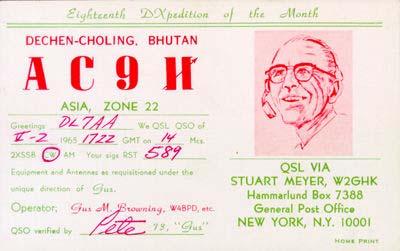 Eighteenth DXpedition of the Month
DECHEN-CHOLING, BHUTAN
AC9H
ASIA, ZONE 22
Greetings DL7AA We QSL QSO of
II-2 1965 1722 GMT on 14 Mcs.
2XSSB CW AM Your sigs RST 589
Equipment and Antennas as requisitioned under the
unique direction of Gus.
Operator; Gus M. Browning, W4BPD, etc.
QSO verified by Pete 73, "Gus"
QSL VIA
STUART MEYER, W2GHK
Hammarlund Box 7388
General Post Office
NEW YORK, N.Y. 10001
HOME PRINT